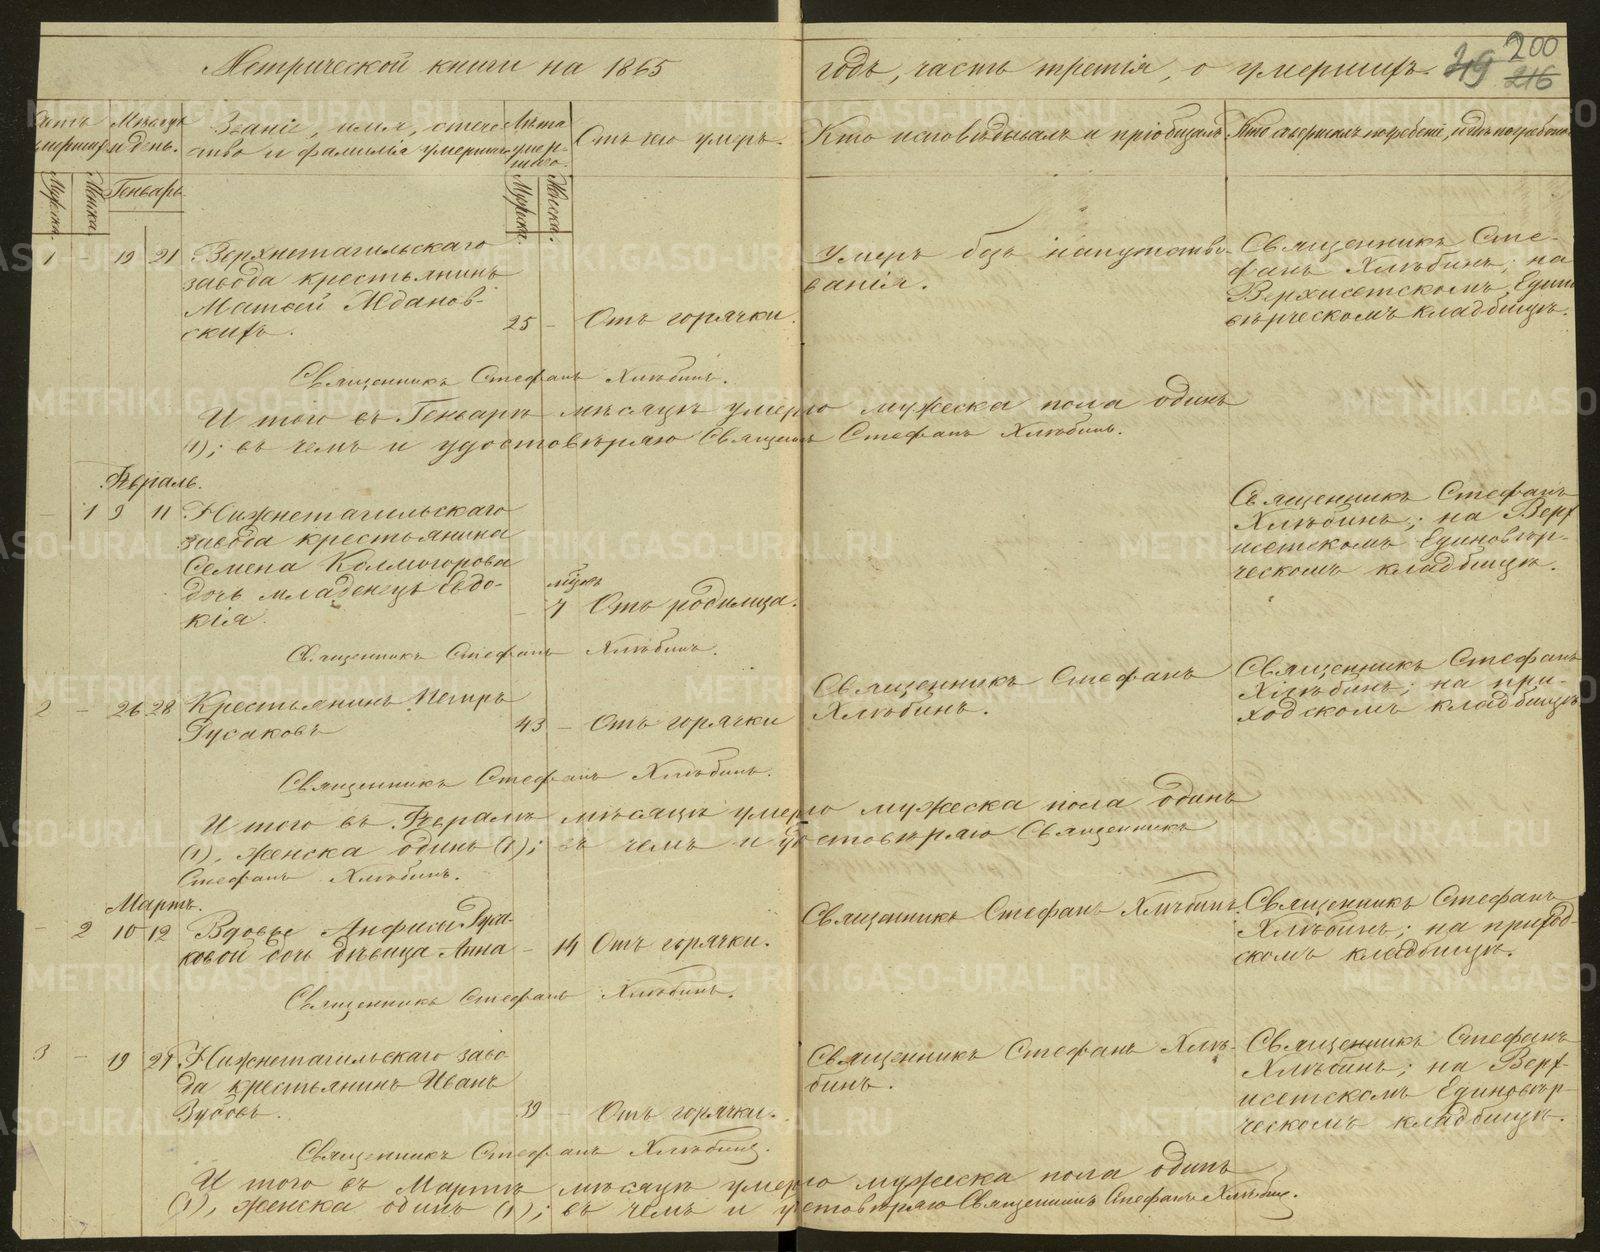 Метрической книги на 1865 годъ, часть третія, о умершихъ.
49 200
216
Счетъ умершихъ
Мѣсяцъ и день.
Званіе, имя, отече-
ство и фамилія умершихъ
Лѣта
умер-
шаго.
Отъ чего умеръ.
Кто исповѣдывалъ и пріобщалъ
Кто совершалъ погребеніе, и гдѣ погребены
Мужска.
Женска
Генварь
Мужска.
Женска.
1 - 19 21 Верхнетагильскаго
завода крестьянинъ
Матѳей Жданов-
скихъ.
25 - Отъ горячки.
Умеръ безъ напутство-
ванія.
Священникъ Сте-
фанъ Хлѣбинъ; на
Верхисетскомъ Един
вѣрческомъ кладбищѣ.
Священникъ Стефанъ Хлѣбинъ.
И того въ Генварѣ мѣсяцѣ умерло мужеска пола одинъ
(1); въ чемъ и удостовѣряю Священникъ Стефанъ Хлѣбинъ.
Февраль.
- 1 9 11 Нижнетагильскаго
завода крестьянина
Семена Колмогорова
дочь младенецъ Евдо-
кія.
- 7 Отъ родимца.
Священникъ Стефанъ
Хлѣбинъ; на Верх
исетскомъ Единовѣр-
ческомъ кладбищѣ.
Священникъ Стефанъ Хлѣбинъ.
2 - 26 28 Крестьянинъ Петръ
Русаковъ
43 - Отъ горячки
Священникъ Стефанъ
Хлѣбинъ.
Священникъ Стефанъ
Хлѣбинъ; на при-
ходскомъ кладбищѣ
Священникъ Стефанъ Хлѣбинъ.
И того въ Февралѣ мѣсяцѣ умерло мужеска пола одинъ
(1), женска одинъ (1); въ чемъ и удостовѣряю Священникъ
Стефанъ Хлѣбинъ.
Мартъ.
- 2 10 12 Вдовы Анфисы Руса-
ковой дочь дѣвица Анна
- 14 Отъ горячки.
Священникъ Стефанъ Хлѣбинъ.
Священникъ Стефанъ
Хлѣбинъ; на приход-
скомъ кладбищѣ.
Священникъ Стефанъ Хлѣбинъ.
3 - 19 21 Нижнетагильскаго заво-
да крестьянинъ Иванъ
Зубовъ.
39 - Отъ горячки.
Священникъ Стефанъ Хлѣ-
бинъ.
Священникъ Стефанъ
Хлѣбинъ; на Верх-
исетскомъ Единовѣр-
ческомъ кладбищѣ.
Священникъ Стефанъ Хлѣбинъ.
И того въ Мартѣ мѣсяцѣ умерло мужеска пола одинъ
(1), женска одинъ (1); въ чемъ и удостовѣряю Священникъ Стефанъ Хлѣбинъ.
METRIKI.GASO-URAL.RU